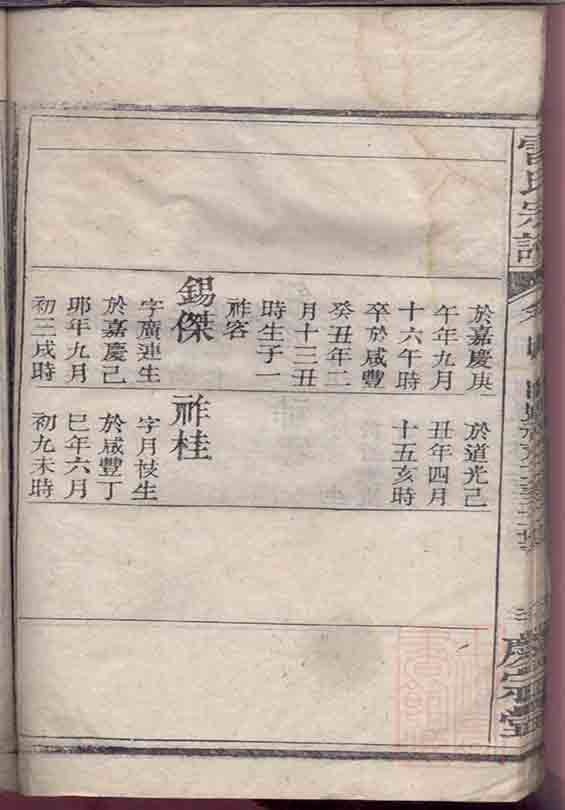 雷氏宗譜
於嘉慶庚
午年九月
十六午時
卒於咸豐
癸丑年二
月十三丑
時生子一
祚容
錫傑
字廣連生
於嘉慶己
卯年九月
初三戌時
於道光己
丑年四月
十五亥時
祚桂
字月枝生
於咸豐丁
巳年六月
初九未時